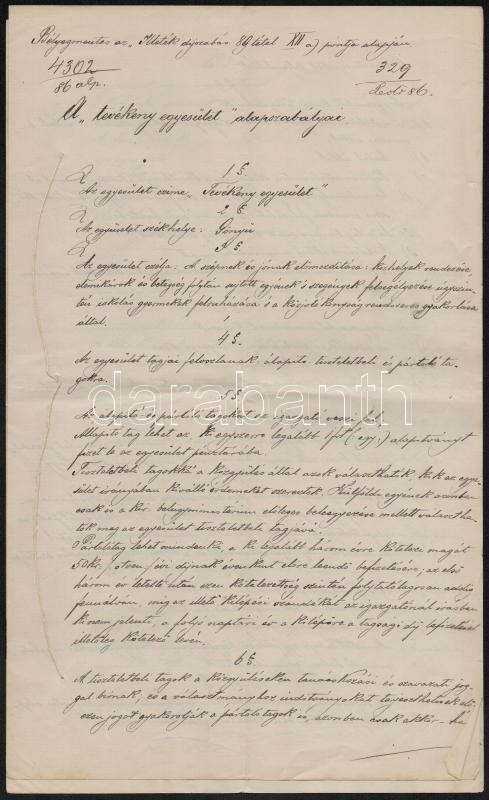 Bélyegmentes az „Illeték díjszabás 89 tétel XII a) pontja alapján
4302
86 alp.
329
86.
A „tevékeny egyesület” alapszabályai
1 §.
Az egyesület czime „Tevékeny egyesület”
2 §.
Az egyesület székhelye: Gönyü
3 §.
Az egyesület czélja: A szépnek és jónak előmozditása: közhelyek rendezése,
elemikárok és betegség folytán sujtott egyének s szegények felsegélyezése ugyszin-
tén iskolás gyermekek felruházása s a közjótékonyság rendszeres gyakorlása
által.
4 §.
Az egyesület tagjai feloszlanak: alapitó tiszteletbeli és pártoló ta-
gokra.
5 §.
Az alapitó és pártoló tagokat az igazgató veszi fel.
Alapitó tag lehet az, ki egyszerre legalább 1 frt (egy) alapitványt
fizet be az egyesület pénztárába.
Tiszteletbeli tagokká a közgyülés által azok választhatók, kik az egye-
sület irányában kiváló érdemeket szereztek. Külföldi egyének azonban
csak is a kir. belügyminiszterium előleges beleegyezése mellett választha-
tók meg az egyesület tiszteletbeli tagjává.
Pártolótag lehet mindenki, a ki legalább három évre kötelezi magát
50 kr. (ötven) évi díjnak évenkint előre leendő befizetésére; az első
három év letelte után ezen kötelezettség szintén folytatólagosan addig
fennálván, mig az illető kilépési szándékát az igazgatónál irásban
be nem jelenti, a folyó naptári év a kilépőre a tagsági díj befizetését
illetőleg kötelező lévén.
6 §.
A tiszteletbeli tagok a közgyüléseken tanácskozási és szavazati jog-
gal birnak, és a választmányhoz inditványokat terjeszthetnek elő
ezen jogot gyakorolják a pártoló tagok is, azonban csak akkor ha
darabanth